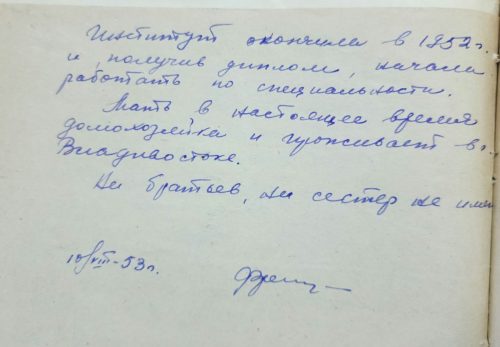 Институт окончила в 1952 г.
и, получив диплом, начала
работать по специальности.
Мать в настоящее время
домохозяйка и проживает в г.
Владивостоке.
Ни братьев, ни сестёр не име
10/VIII-53 г.